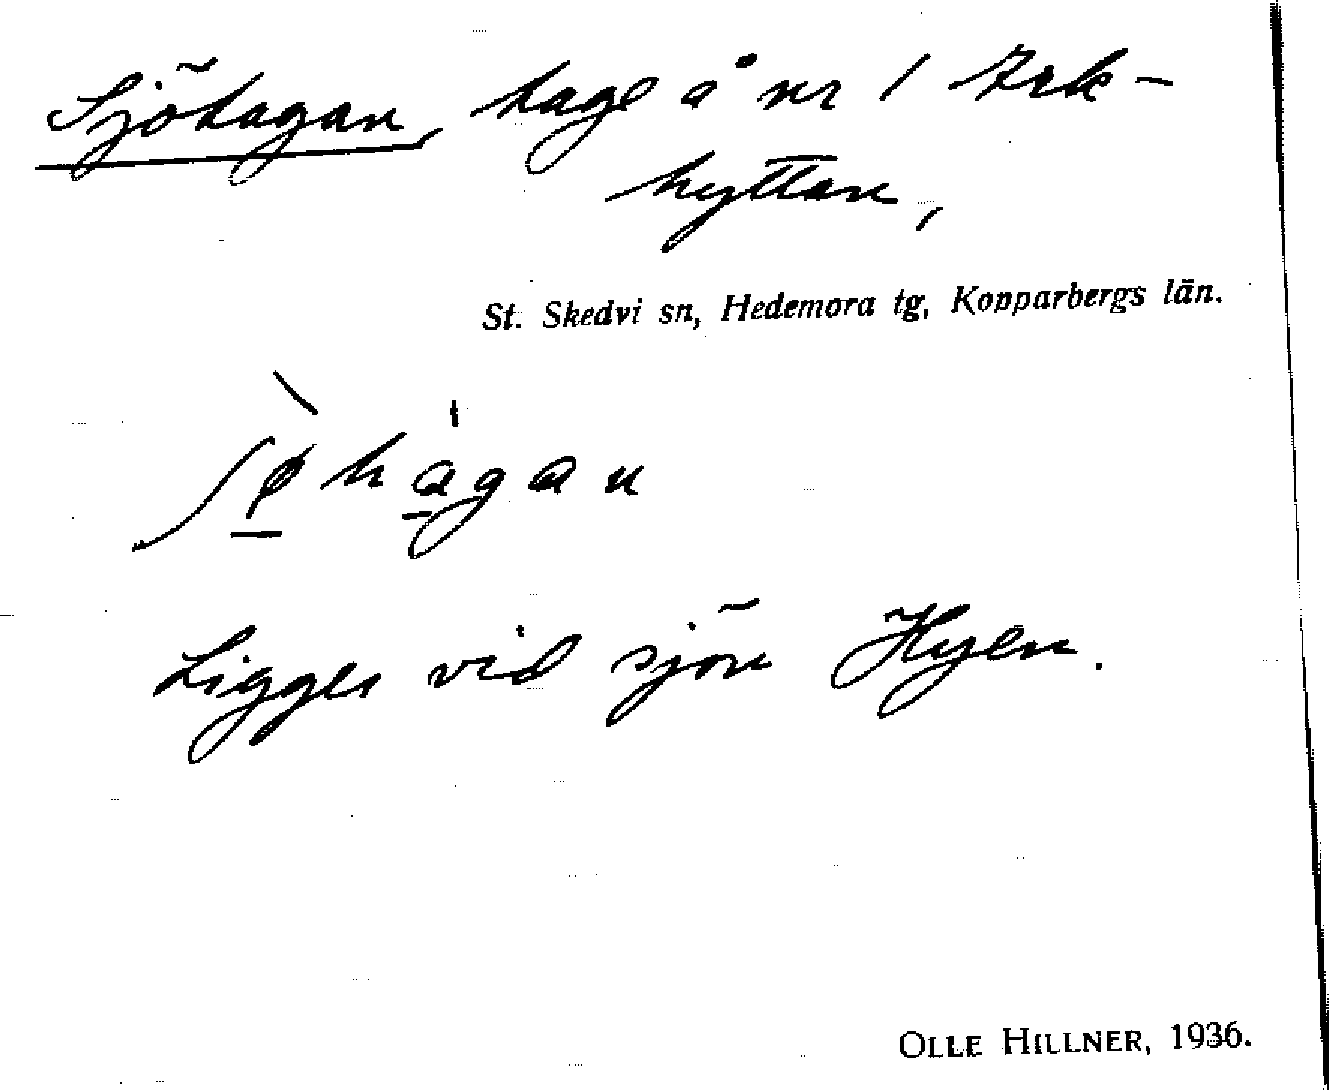 Sjöhagan, hage å nr 1 Ark-
hyttan,
St. Skedvi sn, Hedemora tg, Kopparbergs län.
ʃø̱̀ha̱̍gan
Ligger vid sjön Hyen.
OLLE HILLNER, 1936.